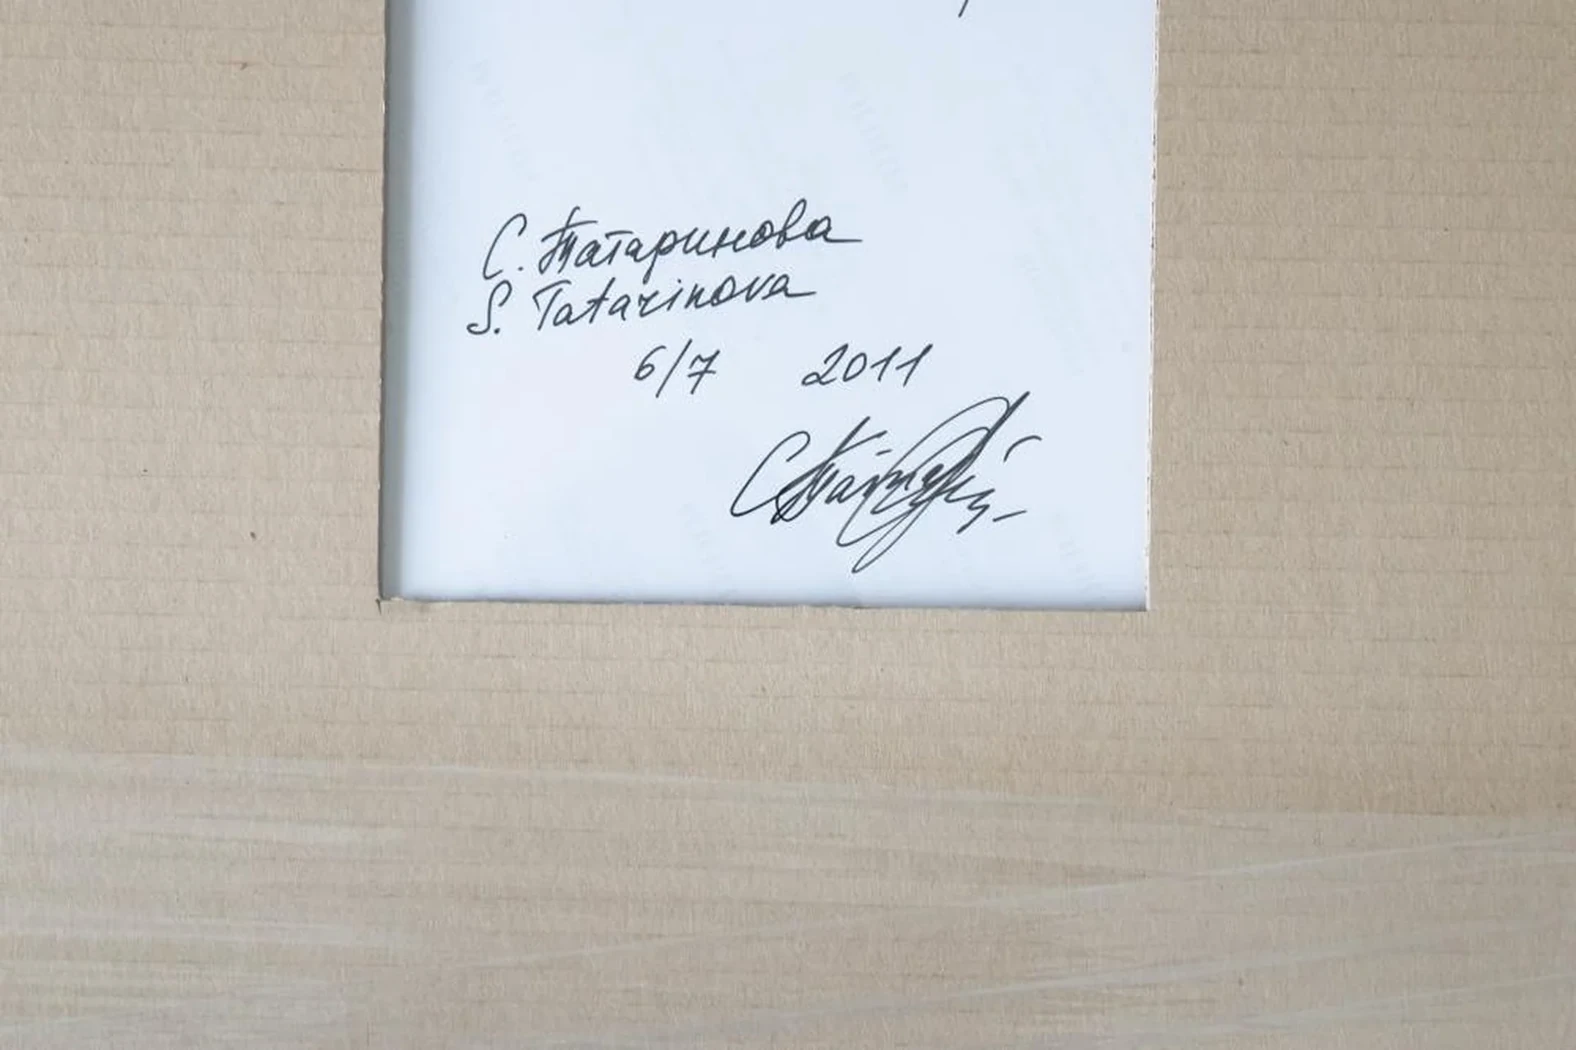 С. Татаринова
S. Tatarinova
6/7 2011